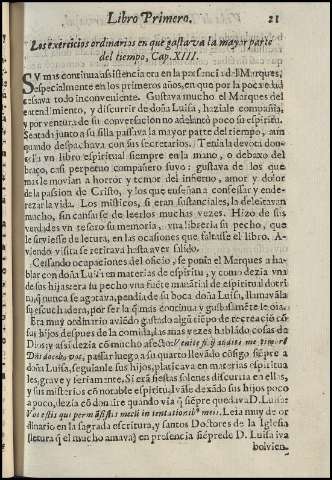 Libro Primero. 21
Los exercicios ordinarios en que gastava la mayor parte
del tiempo, Cap. XIII.
SV mas continua assistencia era en la presencia del Marques,
especialmente en los primeros años, en que por la poca edad
cessava todo inconveniente. Gustava mucho el Marques del
entendimiento, y discurrir de doña Luisa, haziale compañia,
y por ventura de su conversacion no adelantò poco su espiritu.
Sentada junto a su silla passava la mayor parte del tiempo, aun
quando despachava con sus secretarios. Tenia la devota don-
cella vn libro espiritual siempre en la mano, o debaxo del
braço, casi perpetuo compañero suyo: gustava de los que
mas le movian a horror y temor del infierno, amor y dolor
de la passion de Cristo, y los que enseñan a confessar y ende-
rezar la vida. Los misticos, si eran sustanciales, la deleitavan
mucho, sin cansarse de leerlos muchas vezes. Hizo de sus
verdades vn tesoro su memoria, vna libreria su pecho, que
le sirviesse de letura, en las ocasiones que faltasse el libro. A-
viendo visita se retirava hasta aver salido.
Cessando ocupaciones del oficio, se ponia el Marques a ha-
blar con doña Luisa en materias de espiritu, y como dezia vna
de sus hijas era su pecho vna fuete material de espiritual dotri
na, q̃ nunca se agotava, pendia su boca doña Luisa, llamavala
su escuchadera, por ser la q̃ mas continua y gustosamẽte le oia.
Era muy ordinario aviẽdo gastado algũ tiẽpo de recreaciõ cõ
sus hijos despues de la comida, las mas vezes hablãdo cosas de
Dios, y assi dezia cõ mucho afecto: Venite filij audite me timorẽ
Dñi docebo vos, passar luego a su quarto llevãdo cõsigo siẽpre a
doña Luisa, seguianle sus hijos, platicava en materias espiritua
les, grave y seriamente. Si erã fiestas solenes discurria en ellas,
y sus misterios cõ notable espiritu. Ivãle dexãdo sus hijos poco
a poco, dezia cõ donaire quando via q̃ siẽpre quedava D. Luisa:
Vos estis qui permãsistis mecũ in tentationib⁹ meis. Leia muy de or
dinario en la sagrada escritura, y santos Doctores de la Iglesia
(letura q̃ el mucho amava) en presencia siẽpre de D. Luisa iva
bolvien-